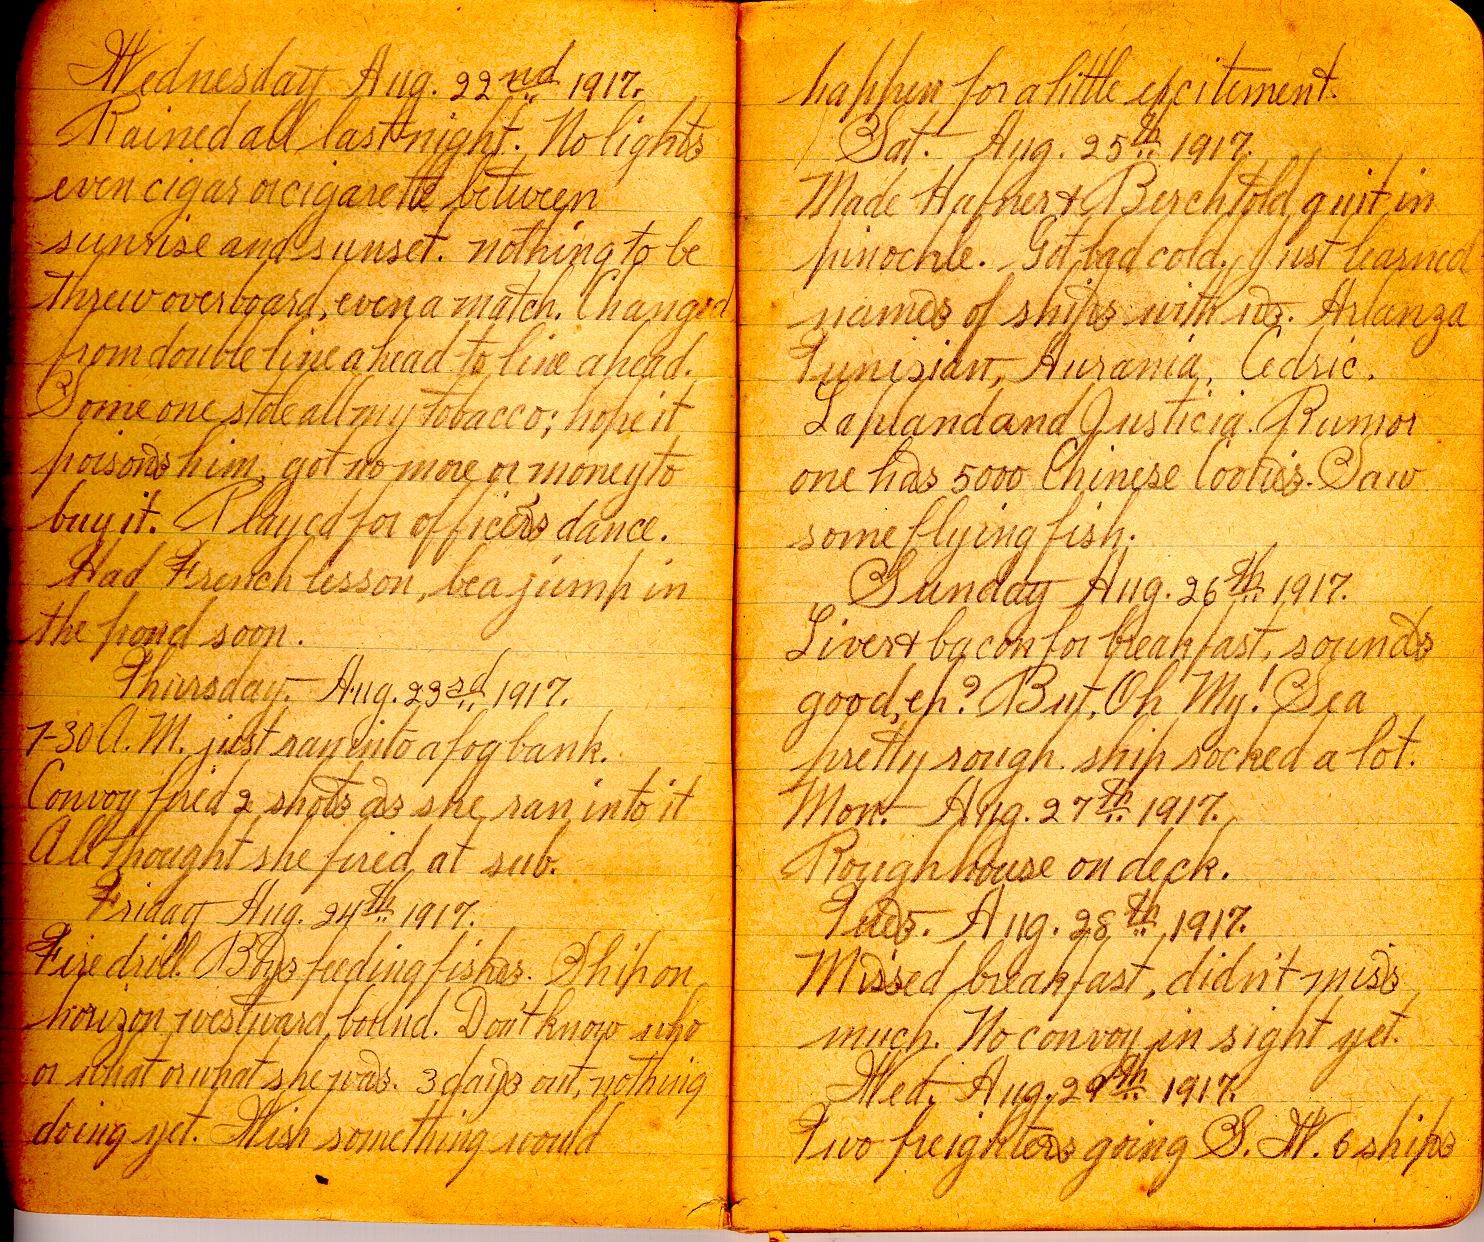 Wednesday Aug. 22nd 1917.
Rained all last night. No lights
even cigar or cigarette between
sunrise and sunset. nothing to be
threw overboard, even a match. Changed
from double line ahead to line ahead.
Some one stole all my tobacco; hope it
poisons him, got no more or money to
buy it. Played for officers dance.
Had French lesson, be a jump in
the pond soon.
Thursday. Aug. 23rd 1917.
7-30 A.M. just ran into a fog bank.
Convoy fired 2 shots as she ran into it
All thought she fired at sub.
Friday Aug. 24th 1917.
Fire drill. Boys feeding fishes. Ship on
horizon westward bound. Don't know who
or what or what she was. 3 days out, nothing
doing yet. Wish something would
happen for a little excitement.
Sat. Aug. 25th 1917.
Made Hafner & Berchtold quit in
pinochle. Got bad cold. Just learned
names of ships with us. Arlanza
Tunisian, Aurania, Cedric.
Lapland and Justicia. Rumor
one has 5000 Chinese Coolies. Saw
some flying fish.
Sunday Aug. 26th 1917.
Liver & bacon for breakfast, sounds
good, eh? But, Oh My! Sea
pretty rough. ship rocked a lot.
Mon. Aug. 27th 1917.
Roughhouse on deck.
Tues. Aug. 28th 1917.
Missed breakfast, didn't miss
much. No convoy in sight yet.
Wed. Aug. 29th 1917.
Two freighters going S.W. 6 ships